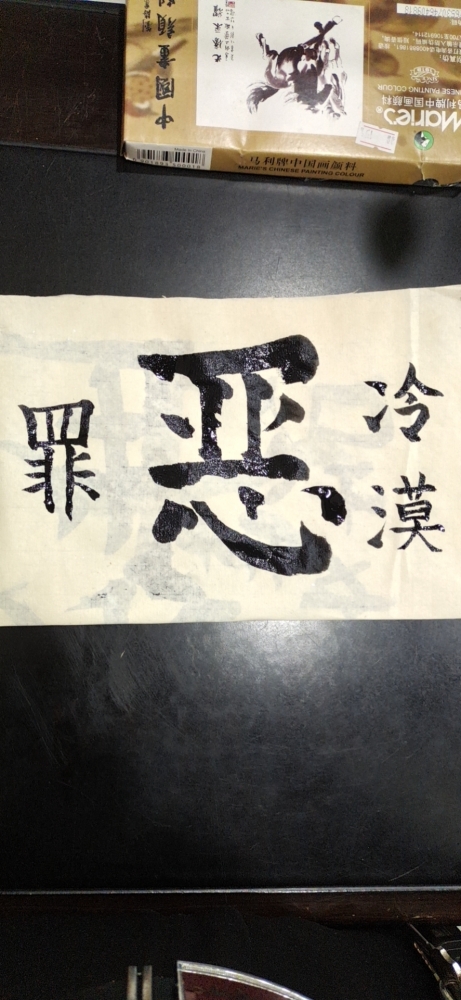 冷漠
恶
罪
中國畫顏料
Marie's
马利牌中国画颜料
MARIE'S CHINESE PAINTING COLOUR